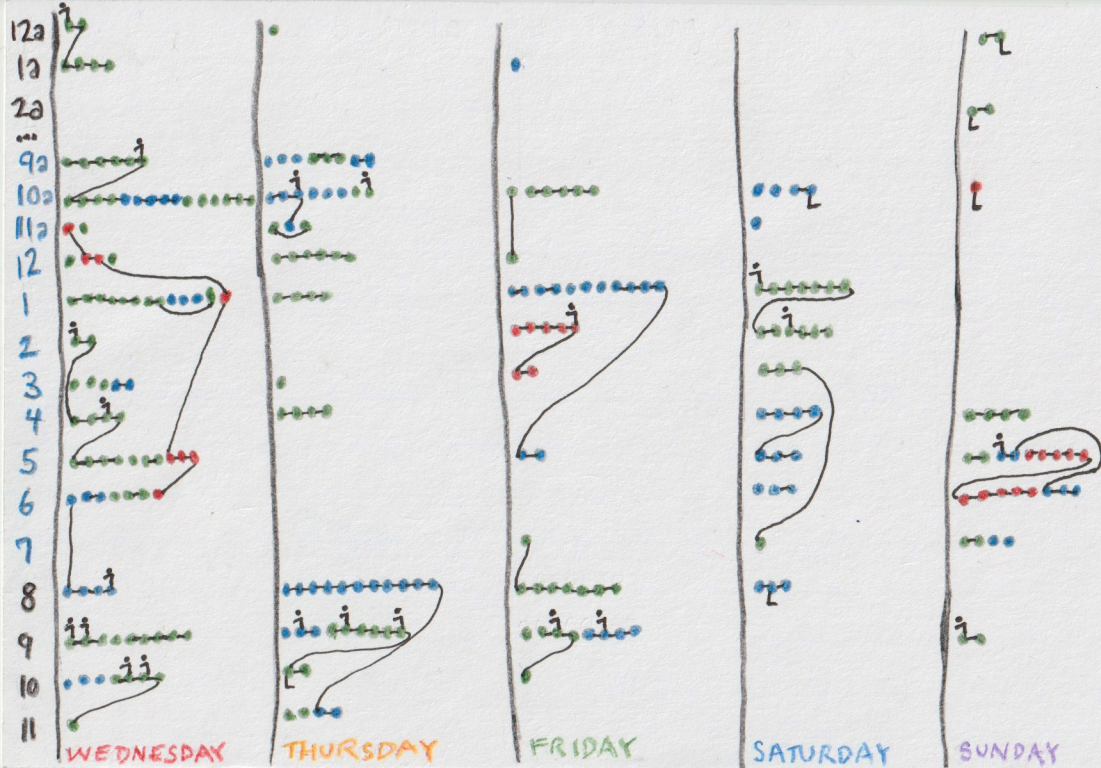 12a
1a
2a
...
9a
10a
11a
12
1
2
3
4
5
6
7
8
9
10
11
WEDNESDAY THURSDAY FRIDAY SATURDAY SUNDAY